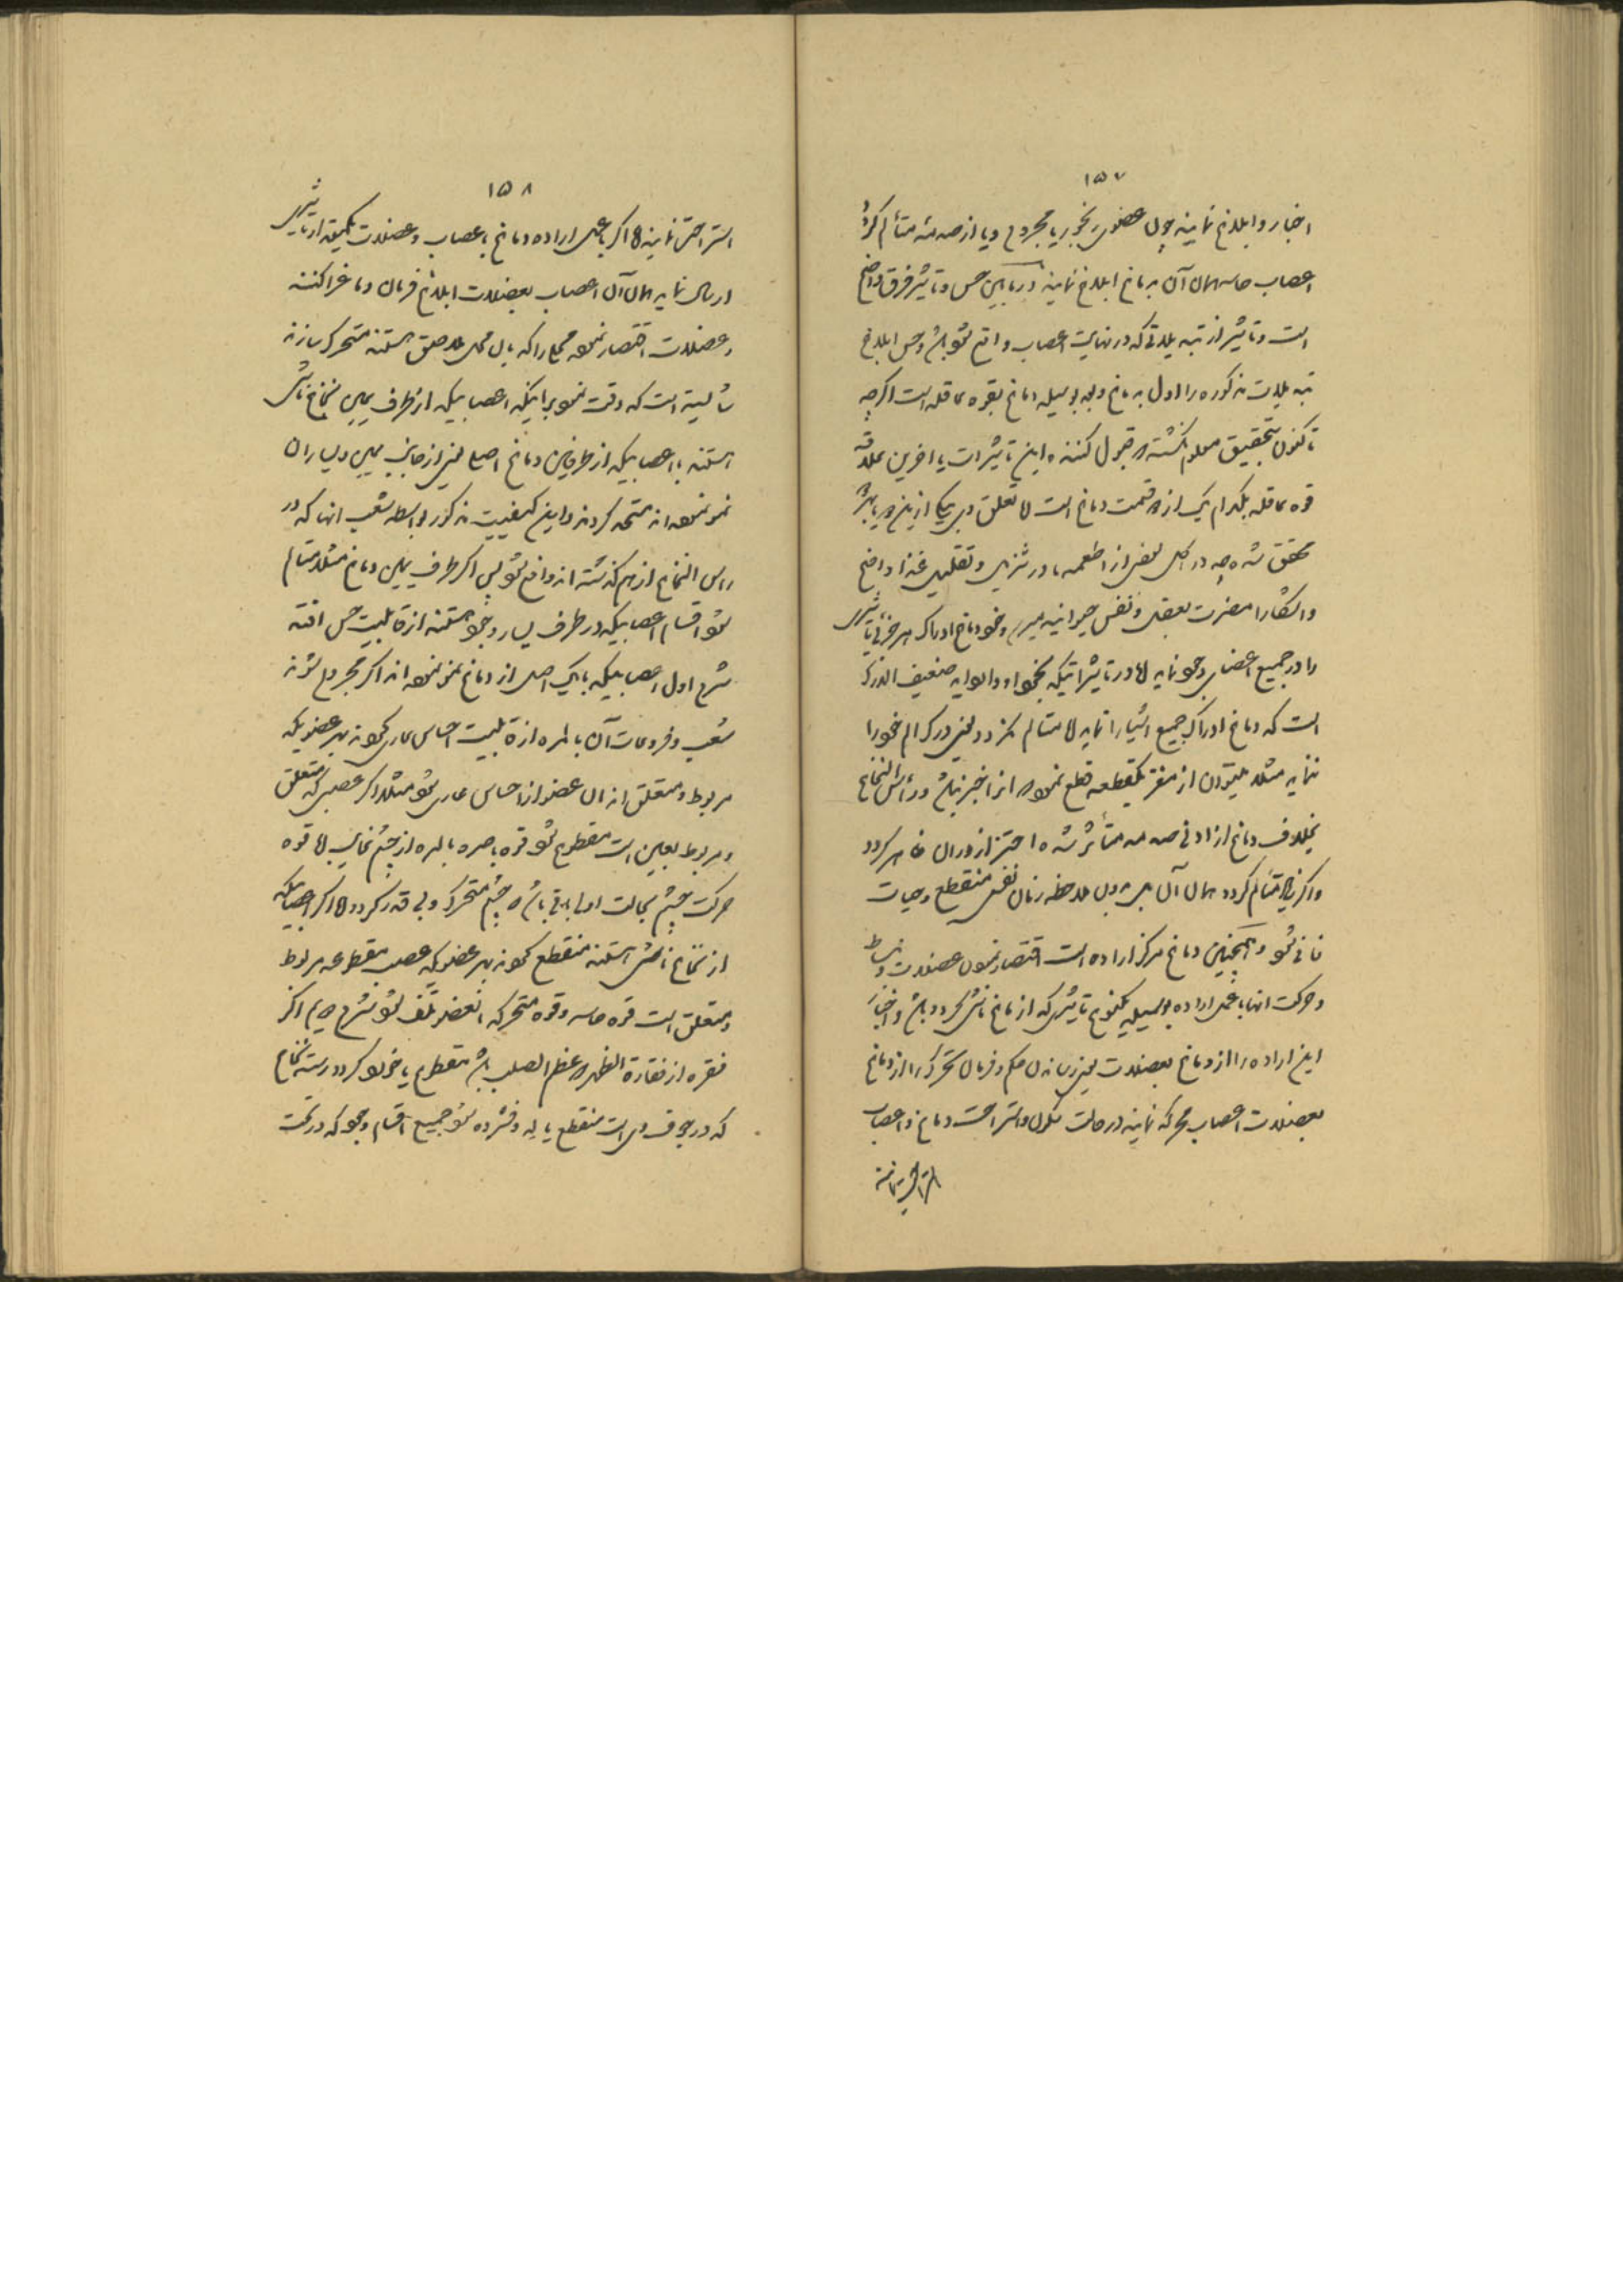 ۱۵۷
اخبار و ابلاغ نمایند چون عضوی مجروح و یا از صدمهٔ متألم گردد
اعصاب حاسه همان آن بدماغ ابلاغ نمایند در مابین حس و تأثیر فرق واضح
است و تأثیر از تبدیلاتی که در نهایت اعصاب واقع شود باشد و حس ابلاغ
تبدیلات مذکوره را اول بدماغ و بعد بوسیله دماغ بقوه عاقله است اگرچه
تاکنون بتحقیق معلوم نگشته که قبول کننده این تأثیرات یا آخرین علاقه
قوه عاقله بکدام یک از قسمت دماغ است لا تعلق وی بیکی از این دو باید
محقق شده چه در اکل بعضی از اطعمه یا در تنزیل و تقلیل غذا واضح
و آشکارا مضرت بعقل و نفس حیوانیه میرسد و خود دماغ ادراک هر جزئی تأثیری
را در جمیع اعضای وجود نماید لا در تأثیراتیکه بخود او وارد آید ضعیف الدرک
است که دماغ ادراک جمیع اشیا را نماید لا متألم نگردد یعنی درک الم خود را
ننماید مثلا میتوان از مغز یکقطعه قطع نمود که از آن خبر نباشد و رأس النخاع
بخلاف دماغ از ادنی صدمه متأثر شده احتراز از در آن ظاهر گردد
و اگر زیاد متألم گردد همان آن بدون ملاحظه زمان نفس منقطع و حیات
فانی شود و همچنین دماغ مرکز اراده است اقتصار نمودن عضلات و انبساط
و حرکت آنها با عمل اراده بوسیله یکنوع تأثیری که از دماغ ناشی گردد باشد و اخبار
این اراده را از دماغ بعضلات یعنی رسانیدن حکم و فرمان تحرک را از دماغ
بعضلات اعصاب محرکه نمایند در حالت سکون و استراحت دماغ و اعصاب
استراحت نمایند
۱۵۸
استراحت نمایند لا اگر با عمل اراده دماغ باعصاب و عضلات یکدقیقه از تأثیری
ارسال نماید همان آن اعصاب بعضلات ابلاغ فرمان دماغ را کنند
و عضلات اقتصار نموده محلی را که بآن محل ملاصق هستند متحرک سازند
شایسته است که دقت نمود بر اینکه اعصابیکه از طرف یمین نخاع ناشی
هستند با اعصابیکه از طرفین دماغ اصلی یعنی از جانب یمین و یسار آن
نمو نموده اند متحد گردند و این کیفیت مذکور بواسطه شعب آنها که در
رأس النخاع از هم گذشته اند واقع شود پس اگر طرف یمین دماغ مثلا متألم
شود اقسام اعصابیکه در طرف یسار وجود هستند از قابلیت حس افتد
شرح اول اعصابیکه بایک اصل از دماغ نمو نموده اند اگر مجروح شوند
شعب و فروعات آن بالمره از قابلیت احساس عاری گردند بهر عضویکه
مربوط و متعلق اند آن عضو از احساس عاری شود مثلا اگر عصبی که متعلق
و مربوط بعین است مقطوع شود قوه باصره بالمره از چشم غایب لا قوه
حرکت چشم بحالت اولی باقی باشد که چشم متحرک و بی قدر گردد لا اگر اعصابیکه
از نخاع ناشی هستند منقطع گردند بهر عضویکه عصب مقطوعه مربوط
و متعلق است قوه حاسه و قوه متحرکه آنعضو تلف شود شرح دویم اگر
فقره از فقارة الظهر که عظم الصلب باشد مقطوع یا خورد گردد رشته نخاع
که در جوف وی است منقطع یا له و فشرده شود جمیع اقسام وجود که در تحت